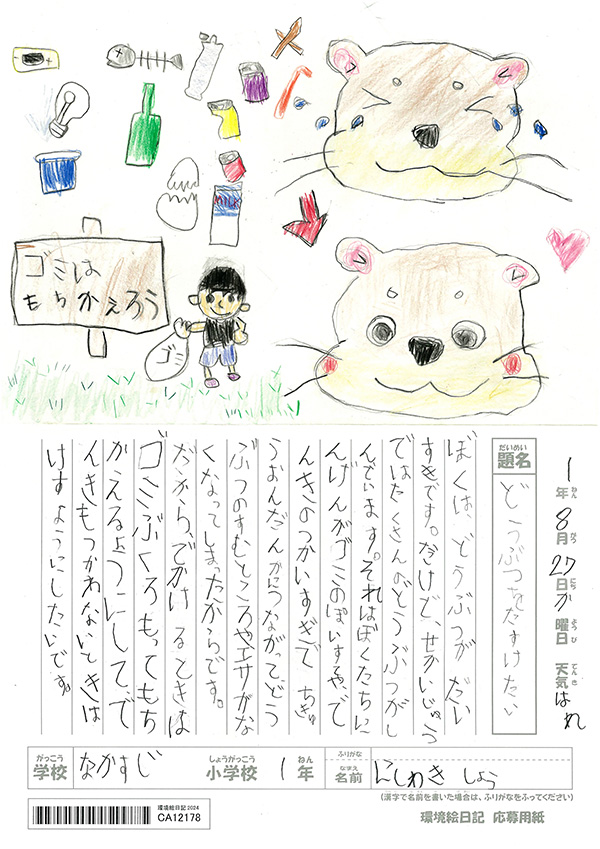 MILK
ゴミは
もちかえろう
ゴミ
1年8月27日か曜日 天気はれ
ねん がつ にち ようび てんき
だいめい
題名 どうぶつをたすけたい
ぼくは、どうぶつが だい
すきです。だけで、せかいじゅう
ではたくさんのどうぶつがし
んでいます。それはぼくたちに
んげんがゴミのぽいすや、で
んきのつかいすぎで ちきゅ
うおんだんかにつながって、どう
ぶつのすむところやエサがな
くなってしまったからです。
だから、でかけるときは
ゴミぶくろもってもち
かえるようにして、で
んきもつかわないときは
けすようにしたいです。
がっこう しょうがっこう ねん ふりがな
学校 なかすじ 小学校 1年 なまえ 名前 にしわき しょう
(漢字で名前を書いた場合は、ふりがなをふってください)
環境絵日記 2024
CA12178
環境絵日記 応募用紙